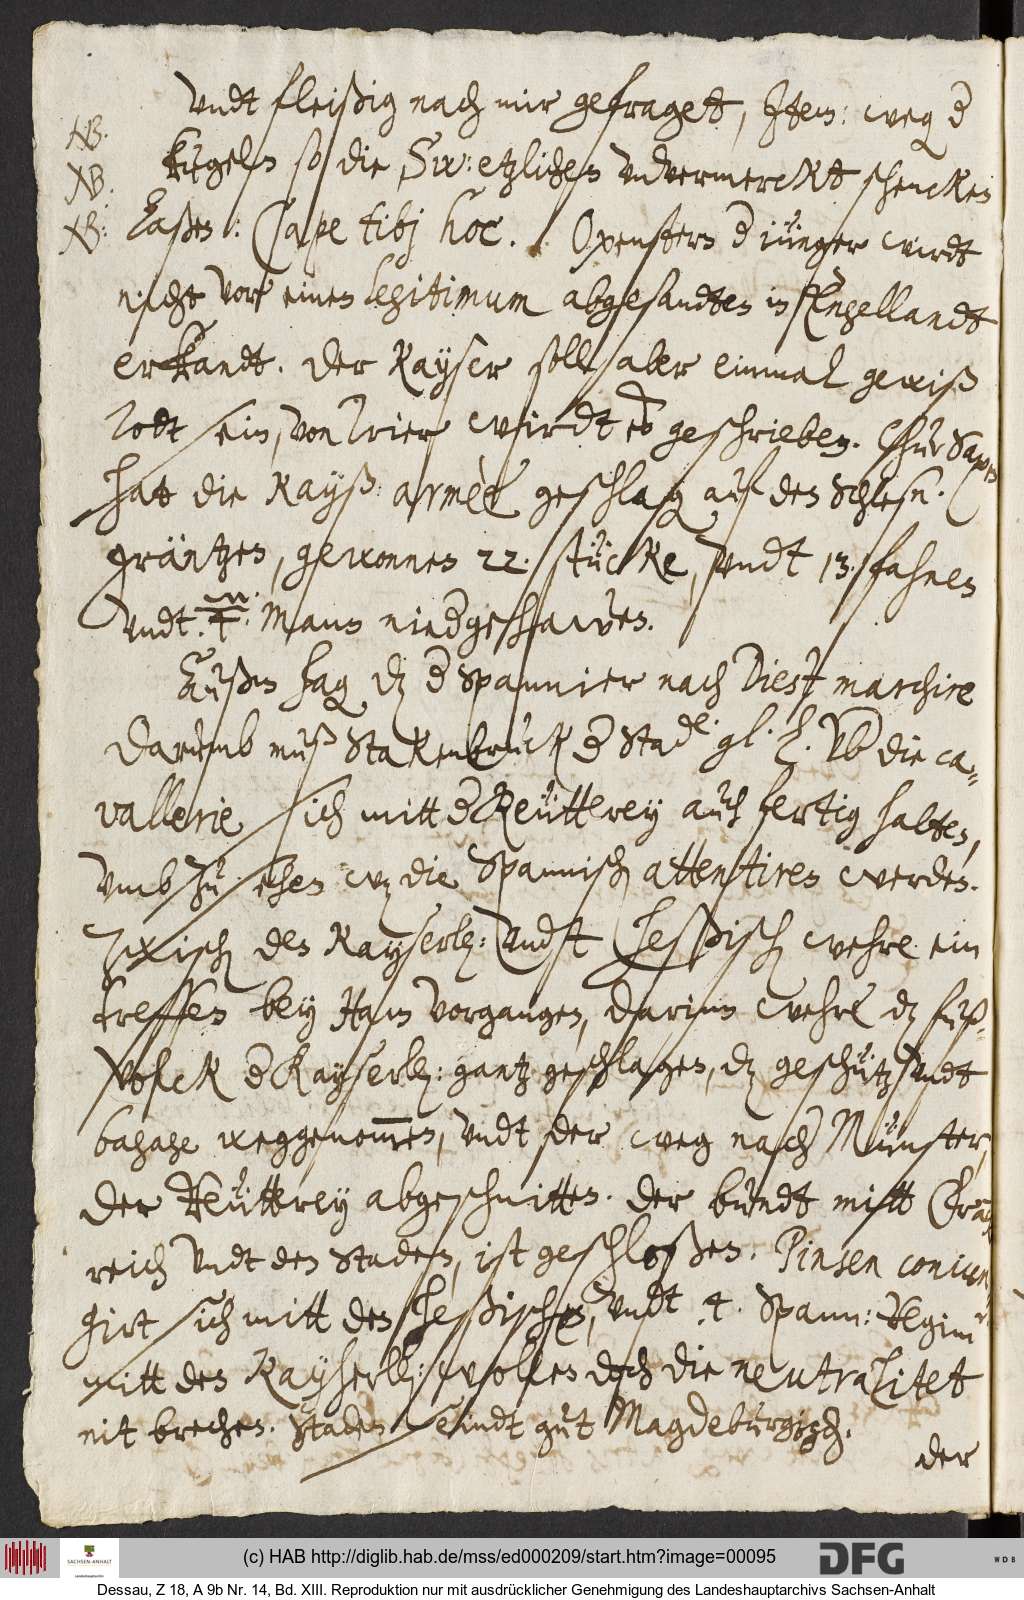 Vndt fleißig nach mir gefraget, Item: weg d
NB.
kugeln so die Sw: etzlichen vnvermerckt schencken
NB.
laßen: Cape tibj hoc. Oxenstern d iünger wirdt
NB:
nicht vor einen legitimum abgesandten in Engellandt
erkandt. Der Kayser soll aber einmal gewiß
Todt sein, von Trier wirdt es geschrieben. Chur Saxen
hat die Kayß: armèè geschlag auf den Schlesn.
gräntzen, gewonnen 22. stücke, vndt 13. fahnen
vndt. Mann niedgehawen.
Außm Hag dz d Spannier nach Diest marchire
Darumb muß Stakenbruck d Stad. gl. L. Vb die ca-
vallerie sich mitt d Reütterey auch fertig halten,
vmb zu sehen wz die Spannisch attentiren werden.
Zwisch den Kayserlz: vndt Heßisch wehre ein
treffen bey Ham vorgangen, darinn wehre dz fuß-
volck d Kayserlz: gantz geschlagen, dz geschütz vndt
bagage weggenommen, vndt der weg nach Münster,
der Reütterey abgeschnitten. Der bundt mitt Franck
reich vndt den Staden, ist geschloßen. Pinsen coniun
girt sich mitt den Heßischen, vndt 4. Spann: Regim
mitt den Kayserll: wollen doch die neutralitet
nit brechen. Staden seindt gut Magdeburgisch.
der
(c) HAB http://diglib.hab.de/mss/ed000209/start.htm?image=00095
SACHSEN-ANHALT
DFG
WDB
Dessau, Z 18, A 9b Nr. 14, Bd. XIII. Reproduktion nur mit ausdrücklicher Genehmigung des Landeshauptarchivs Sachsen-Anhalt